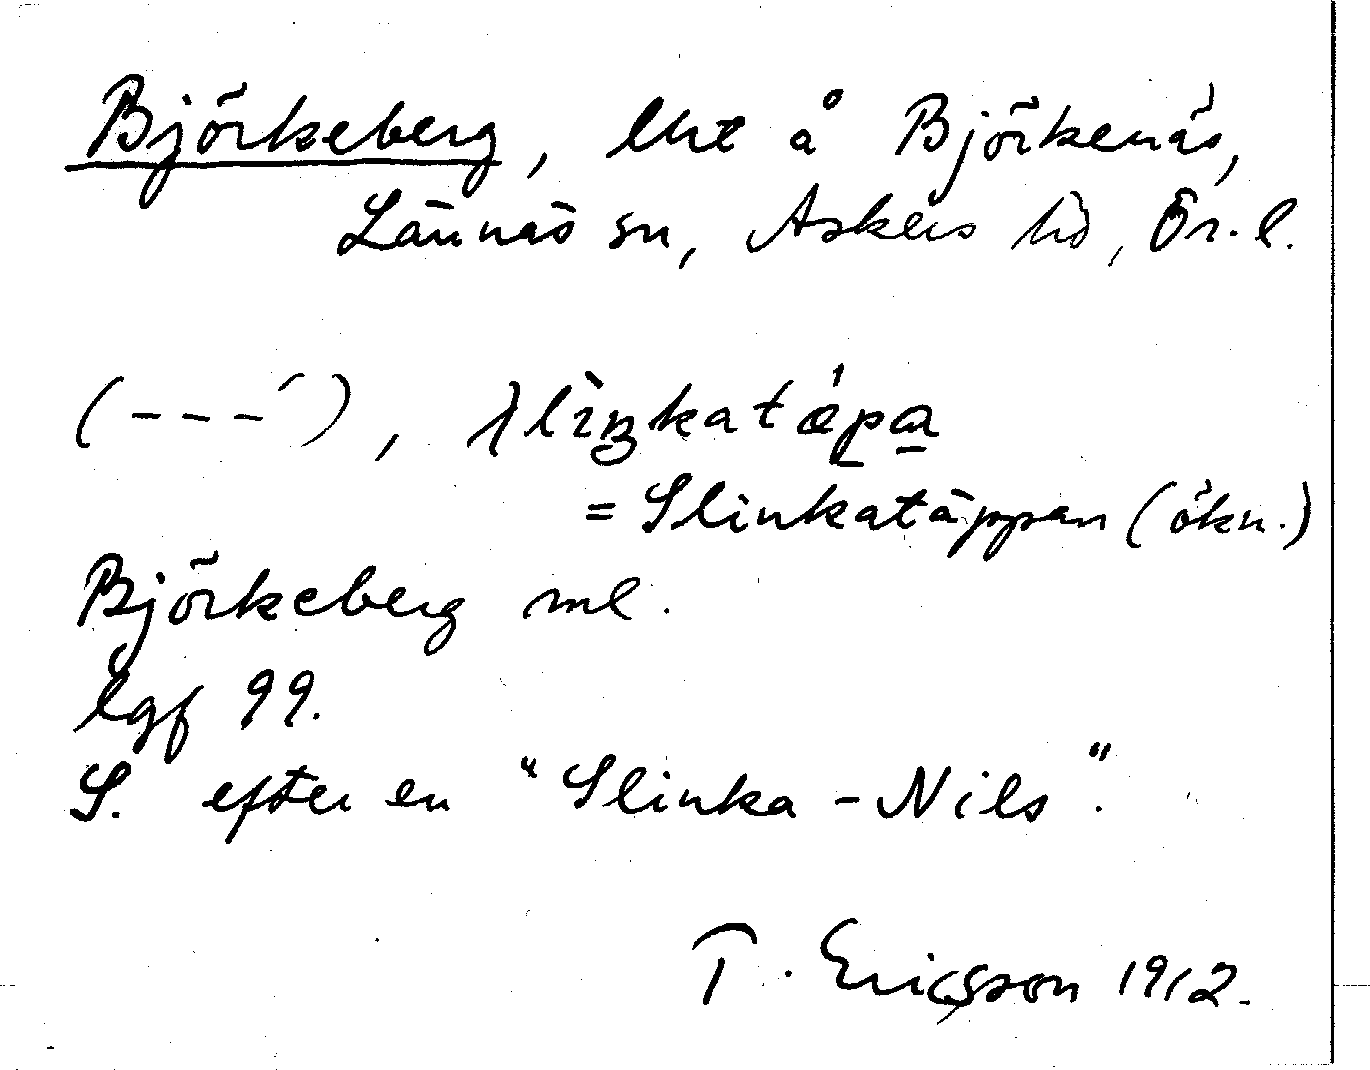 Björkeberg, lht å Björkenäs,
Lännäs sn, Askers hd, Ör. l.
(– – –´),
= Slinkatäppan (ökn.)
Björkeberg ml.
lgf 99.
S. efter en "Slinka-Nils".
T. Ericsson 1912.